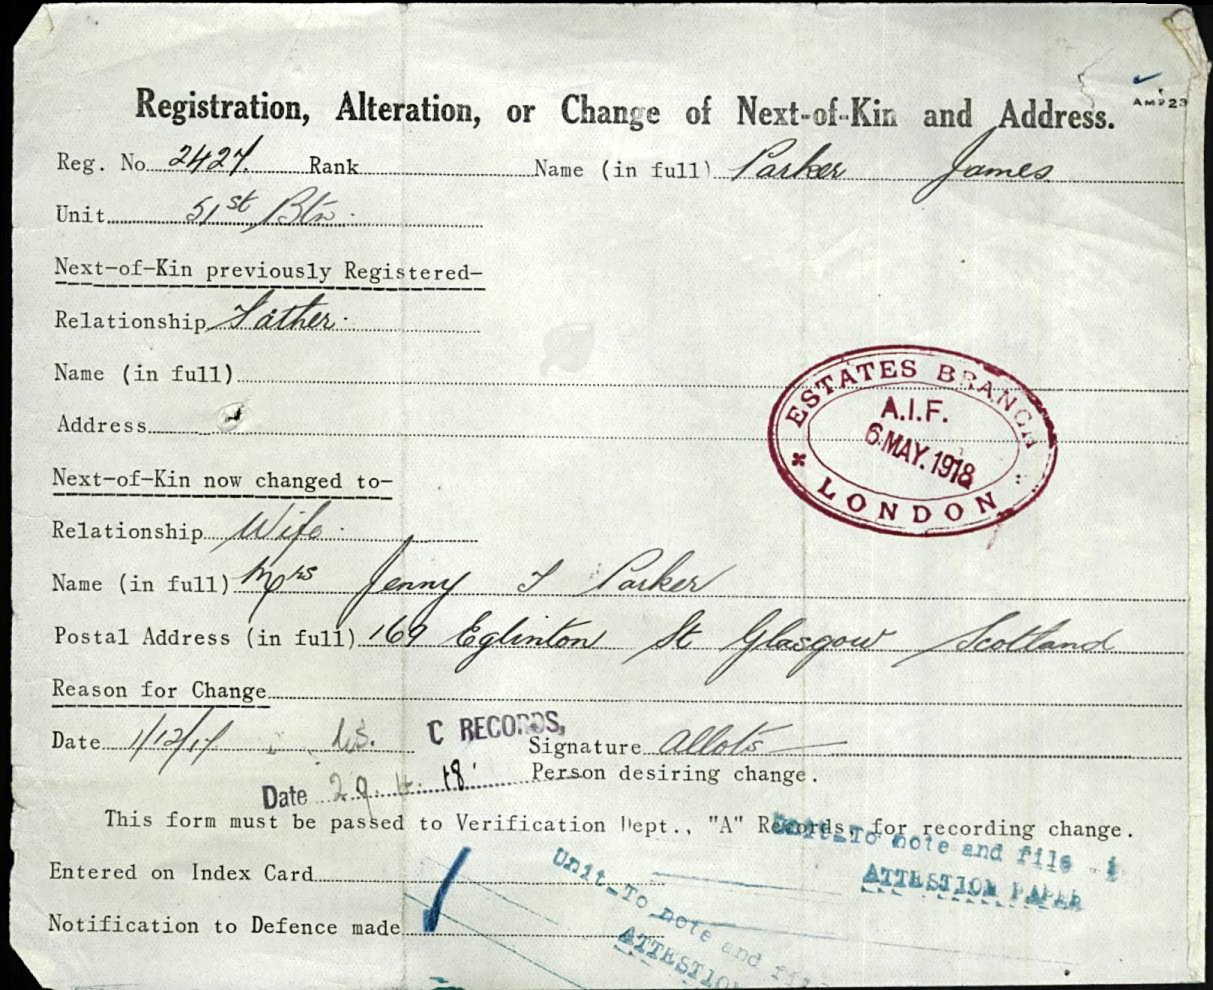 AM223
Registration, Alteration, or Change of Next-of-Kin and Address.
Reg. No. 2427. Rank Name (in full) Parker James
Unit 51st Btn.
Next-of-Kin previously Registered-
Relationship Father.
Name (in full)
Address
ESTATES BRANCH
A.I.F.
6 MAY. 1918
LONDON
Next-of-Kin now changed to-
Relationship Wife.
Name (in full) Mrs Jenny T Parker
Postal Address (in full) 169 Eglinton St Glasgow Scotland
Reason for Change
Date 1/12/17 C RECORDS, Signature Allots
Date 29. 4. 18 Person desiring change.
This form must be passed to Verification Dept., "A" Records, for recording change.
Unit-To note and file
ATTESTION PAPER
Entered on Index Card
Unit-To note and file
ATTESTION
Notification to Defence made